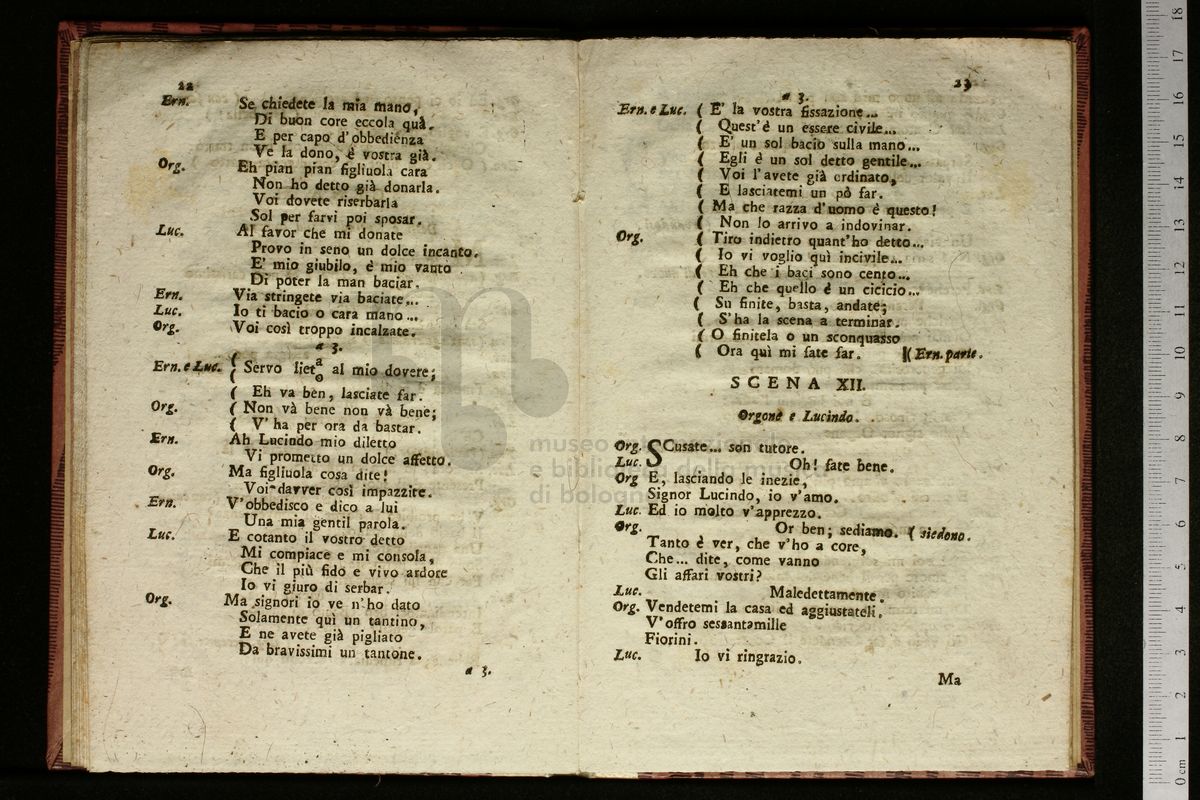 22
Ern. Se chiedete la mia mano,
Di buon core eccola quà.
E per capo d'obbedienza
Ve la dono, è vostra già.
Org. Eh pian pian figliuola cara
Non ho detto già donarla.
Voi dovete riserbarla
Sol per farvi poi sposar.
Luc. Al favor che mi donate
Provo in seno un dolce incanto.
E' mio giubilo, è mio vanto
Di poter la man baciar.
Ern. Via stringete via baciate...
Luc. Io ti bacio o cara mano...
Org. Voi così troppo incalzate.
a 3.
Ern. e Luc. ( Servo lieta/o al mio dovere;
( Eh va ben, lasciate far.
Org. ( Non và bene non và bene;
( V' ha per ora da bastar.
Ern. Ah Lucindo mio diletto
Vi prometto un dolce affetto.
Org. Ma figliuola cosa dite!
Voi davver così impazzite.
Ern. V'obbedisco e dico a lui
Una mia gentil parola.
Luc. E cotanto il vostro detto
Mi compiace e mi consola,
Che il più fido e vivo ardore
Io vi giuro di serbar.
Org. Ma signori io ve n' ho dato
Solamente quì un tantino,
E ne avete già pigliato
Da bravissimi un tantone.
a 3.
23
a 3.
Ern. e Luc. ( E' la vostra fissazione...
( Quest'è un essere civile...
( E' un sol bacio sulla mano...
( Egli è un sol detto gentile...
( Voi l'avete già ordinato,
( E lasciatemi un pò far.
( Ma che razza d'uomo è questo!
( Non lo arrivo a indovinar.
Org. ( Tiro indietro quant'ho detto...
( Io vi voglio quì incivile...
( Eh che i baci sono cento...
( Eh che quello è un cicicio...
( Su finite, basta, andate;
( S'ha la scena a terminar.
( O finitela o un sconquasso
( Ora quì mi fate far. ( Ern. parte.
SCENA XII.
Orgone e Lucindo.
Org. SCusate... son tutore.
Luc. Oh! fate bene.
Org E, lasciando le inezie,
Signor Lucindo, io v'amo.
Luc. Ed io molto v'apprezzo.
Org. Or ben; sediamo. ( siedono.
Tanto è ver, che v'ho a core,
Che... dite, come vanno
Gli affari vostri?
Luc. Maledettamente.
Org. Vendetemi la casa ed aggiustateli.
V'offro sessantamille
Fiorini.
Luc. Io vi ringrazio.
Ma
museo
e biblioteca della musica
di bologna
0 cm 1 2 3 4 5 6 7 8 9 10 11 12 13 14 15 16 17 18